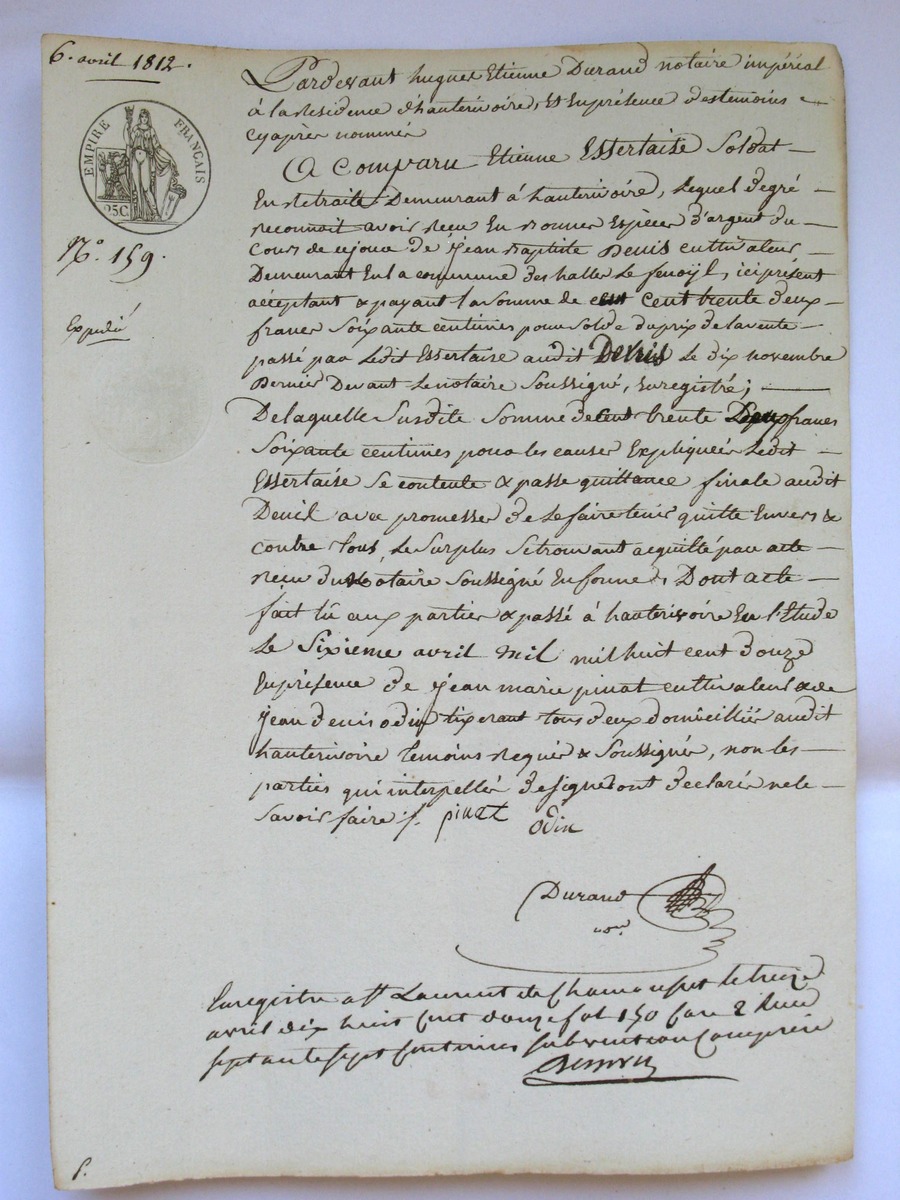 6. avril 1812.
EMPIRE FRANÇAIS
25C.
N.° 159.
Expedié
Pardevant hugues Etienne Durand notaire impérial
à la Residence d'hauterivoire, et Enprésence destemoins
cyaprès nommés
A Comparu Etienne Essertaise Soldat
En Retraite Demeurant à hauterivoire, Lequel degré
reconnait avoir recu En bonnes Espèces d'argent du
Cours de cejour de Jean Baptiste Denis cultivateur
Demeurant En la commune des halles Le fenoÿl, ici présent
acceptant & payant la Somme de cent trente deux
francs Soixante centimes pour Solde duprix delavente
passé par Ledit Essertaise audit Denis Le dix novembre
Dernier Devant Lenotaire Soussigné, Enregistré;
De laquelle Susdite Somme de cent trente Deux francs
Soixante centimes pour les causes Expliquées Ledit
Essertaise Se contente & passe quittance finale audit
Denis avec promesses de Le faire tenir quitte Envers &
contre tous, Le Surplus Setrouvant acquitté par acte
reçu du Notaire Soussigné En forme; Dont acte
fait lû aux parties & passé à hauterivoire En l'Etude
Le Sixieme avril Mil mil huit cent Douze
Enprésence de Jean marie pinat cultivateur & de
Jean denis odin tixerant tous deux domiciliés audit
hauterivoire temoins Requis & Soussignés, non les
parties qui interpellés designer ont declarés nele
Savoir faire ./. pinat
odin
Durand
no.re
Enregistré a S.t Laurent de Chamousset le treize
avril dix huit cent douze fol 150 Case 2 Recu
septante sept centimes subvention Comprise